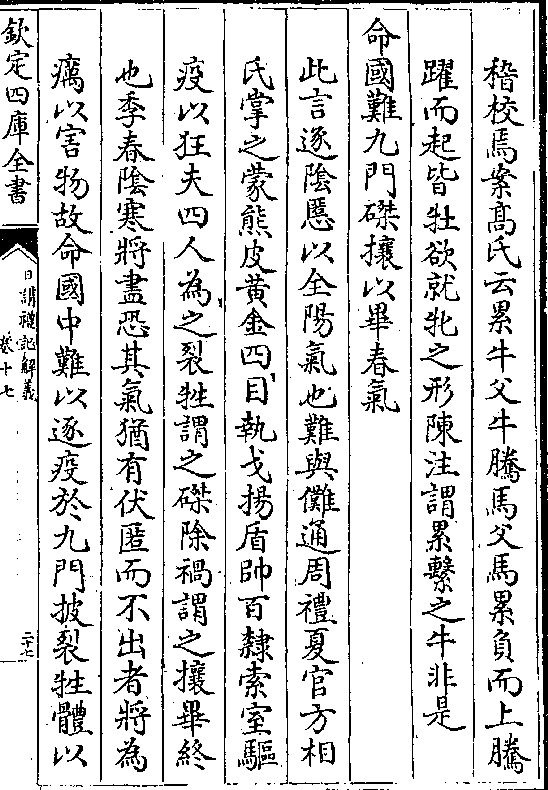 稽校焉案髙氏云累牛父牛騰馬父馬累負而上騰
躍而起皆牡欲就牝之形陳注謂累繫之牛非是
命國難九門磔攘以畢春氣
此言逐陰慝以全陽氣也難與儺通周禮夏官方相
氏掌之蒙熊皮黄金四目執戈揚盾帥百隸索室驅
疫以狂夫四人為之裂牲謂之磔除禍謂之攘畢終
也季春陰寒將盡恐其氣猶有伏匿而不出者將為
癘以害物故命國中難以逐疫於九門披裂牲體以
欽定四庫全書
日講禮記解義
卷十七
二十七